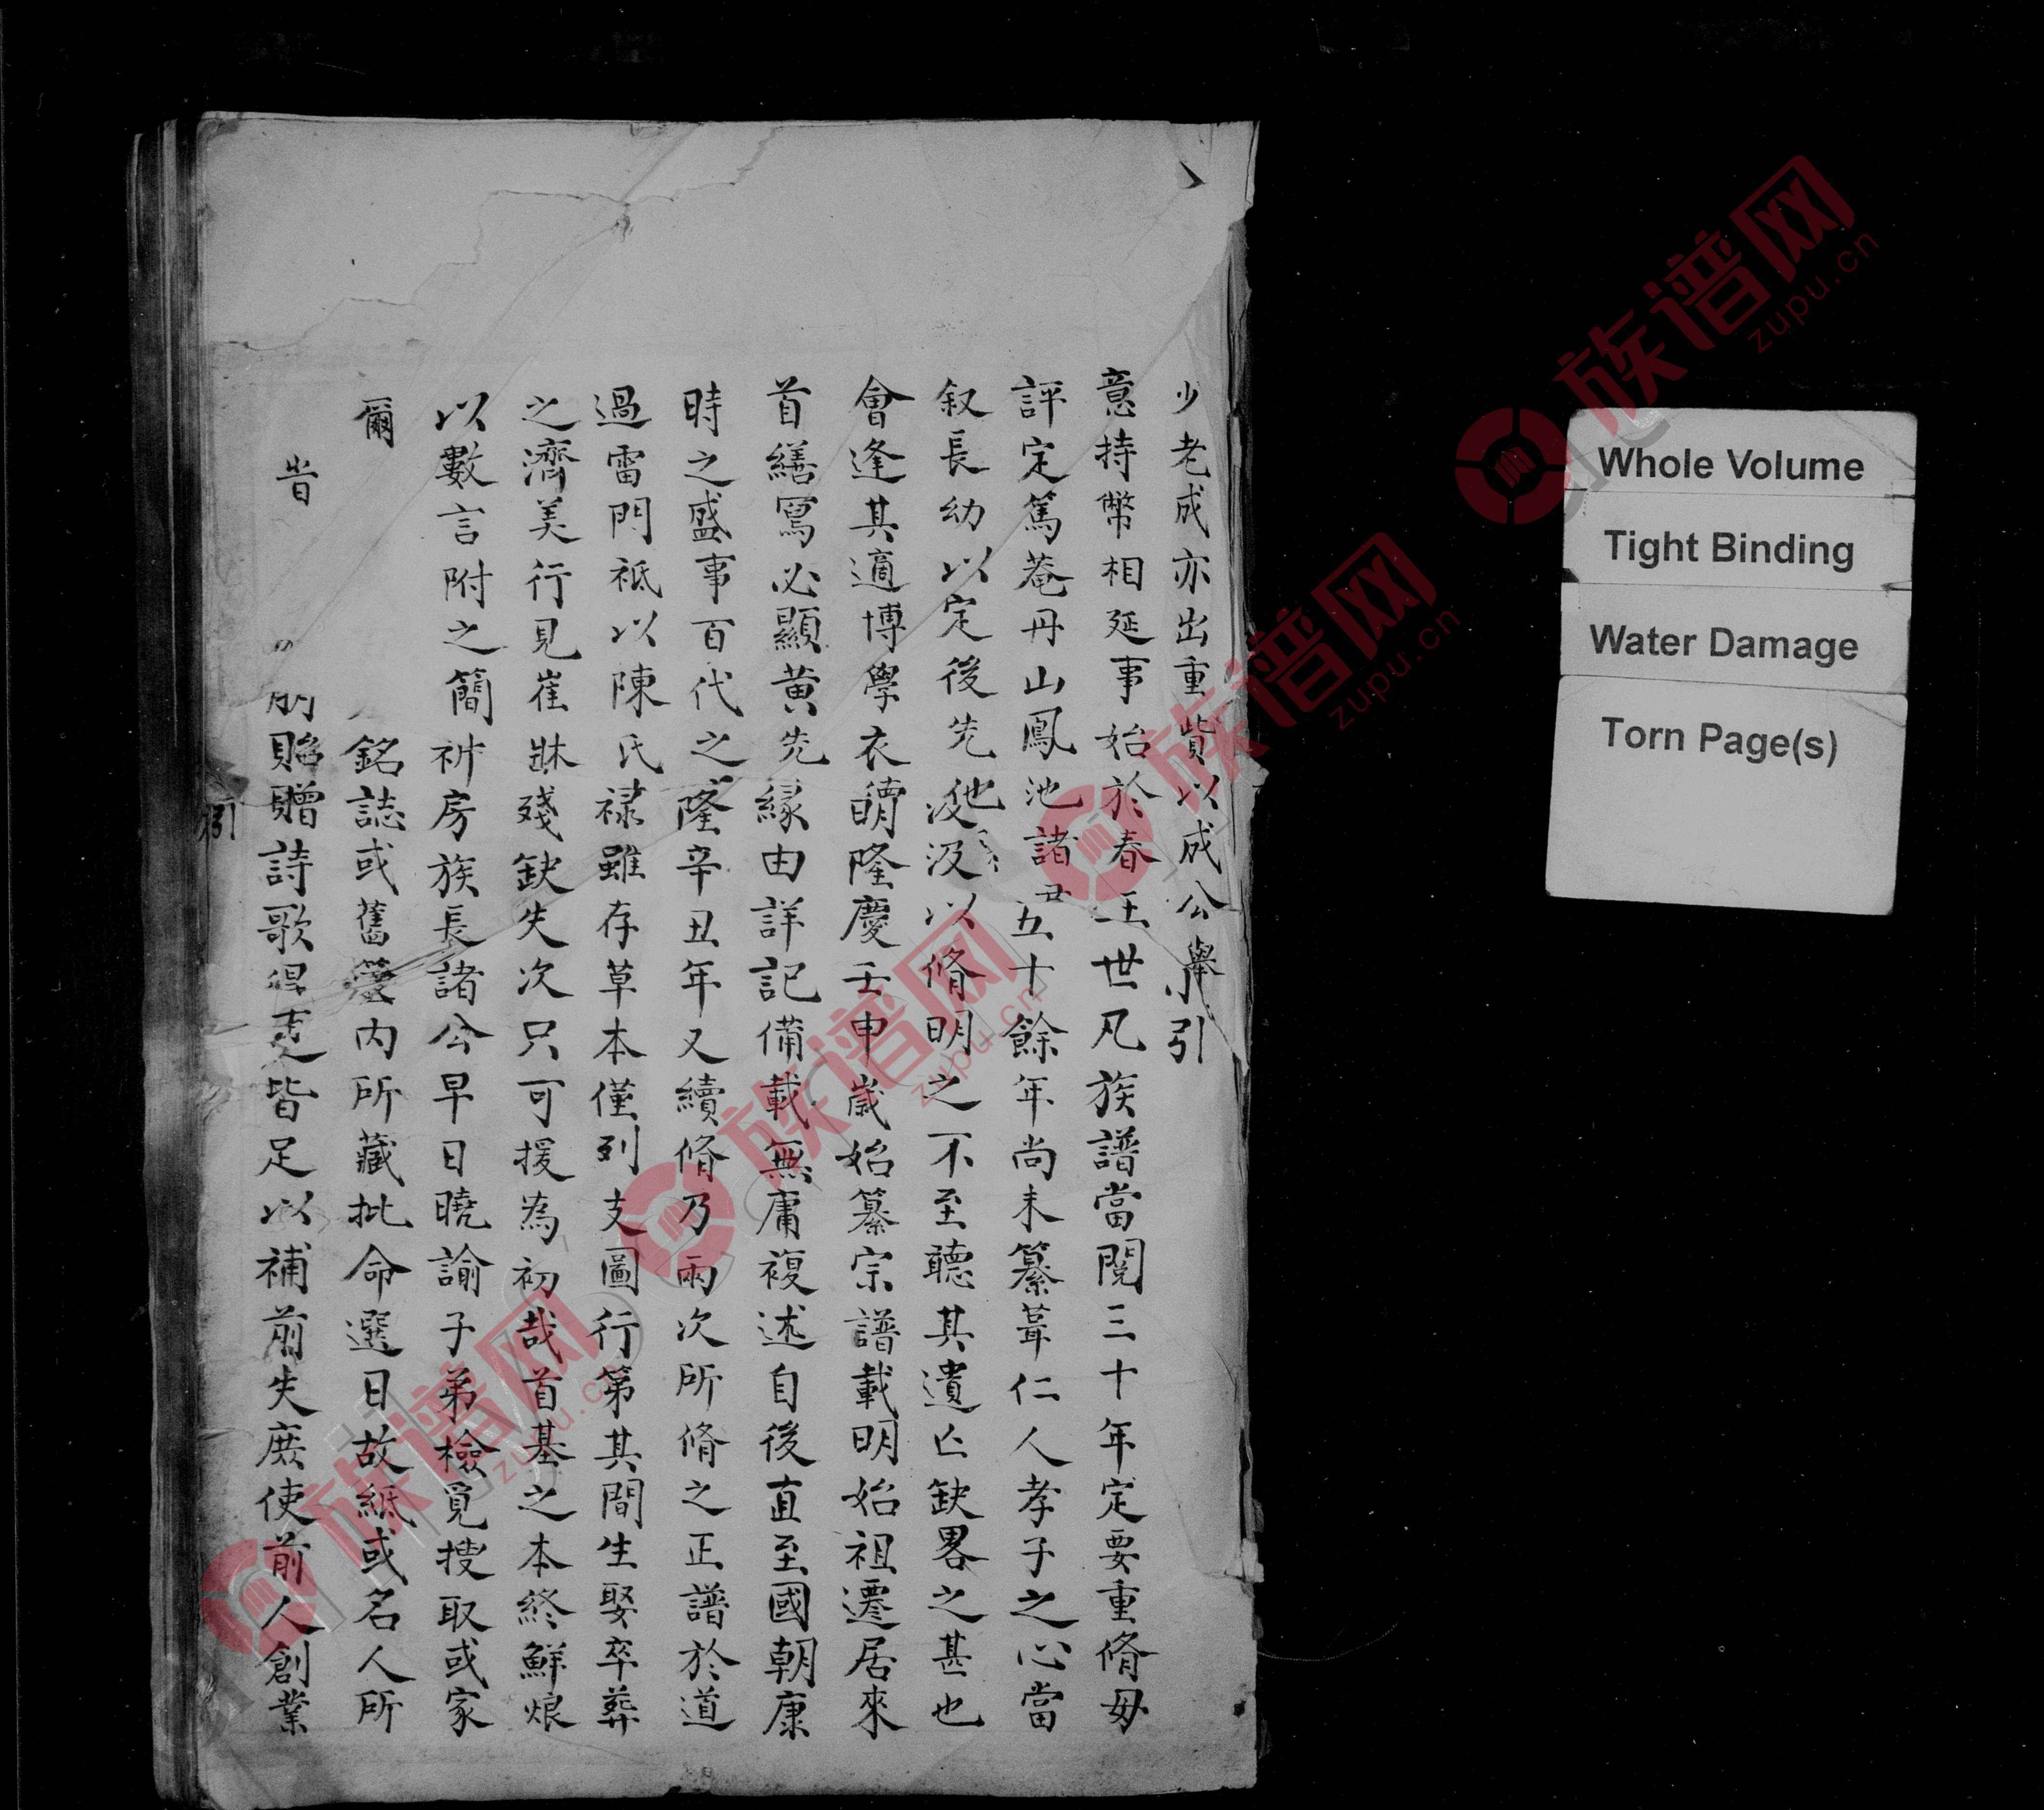 少老成亦出重貲以成公舉小引
意持幣相延事始於春王世凡族譜當閱三十年定要重脩毋
評定篤菴丹山鳳池諸君五十餘年尚未纂葺仁人孝子之心當
叙長幼以定後先他汲汲以脩明之不至聽其遺亡缺畧之甚也
會逢其適博學衣 隆慶壬申歲始纂宗譜載明始祖遷居來
首繕寫必顯黄先緣由詳記備載無庸複述自後直至國朝康
時之盛事百代之隆辛丑年又續脩乃兩次所脩之正譜於道
過雷門祗以陳氏祿雖存草本僅列支圖行第其間生娶卒葬
之濟美行見崔 殘缺失次只可援為初哉首基之本終鮮烺
以數言附之簡 房族長諸公早日曉諭子弟檢覓搜取或家
爾 銘誌或舊篋内所藏批命選日故紙或名人所
昔 朋貽贈詩歌 皆足以補前失庶使前人創業
引
Whole Volume
Tight Binding
Water Damage
Torn Page(s)
族谱网
zupu.cn
族谱网
zupu.cn
族谱网
zupu.cn
族谱网
zupu.cn